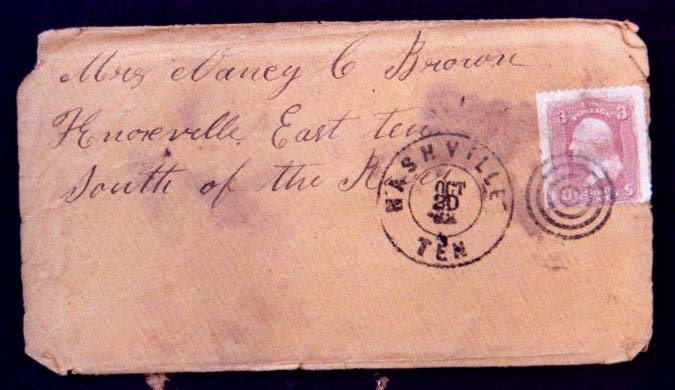 Mrs Nancy C Brown
Knoxville East ten
South of the River
NASHVILLE
OCT
20
TEN
3 3
POSTAGE